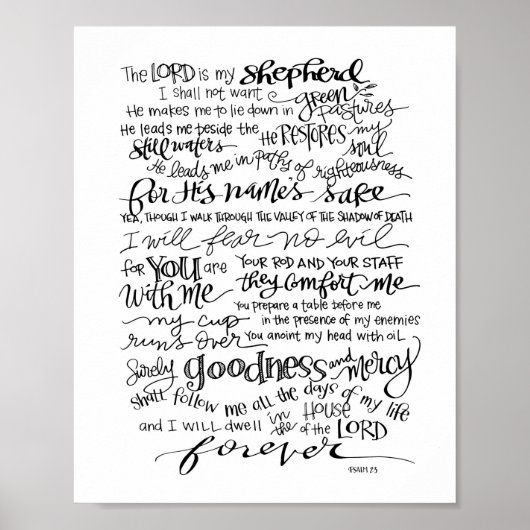 The LORD is my shepherd
I shall not want
He makes me to lie down in green pastures
He leads me beside the still waters
He RESTORES my soul
He leads me in paths of righteousness
for His name's sake
YEA, THOUGH I WALK THROUGH THE VALLEY OF THE SHADOW OF DEATH
I will fear no evil
for YOU are with me
YOUR ROD AND YOUR STAFF
they comfort me
You prepare a table before me
in the presence of my enemies
You anoint my head with oil
my cup runs over
Surely goodness and mercy
shall follow me all the days of my life
and I will dwell in the House of the LORD
forever
PSALM 23